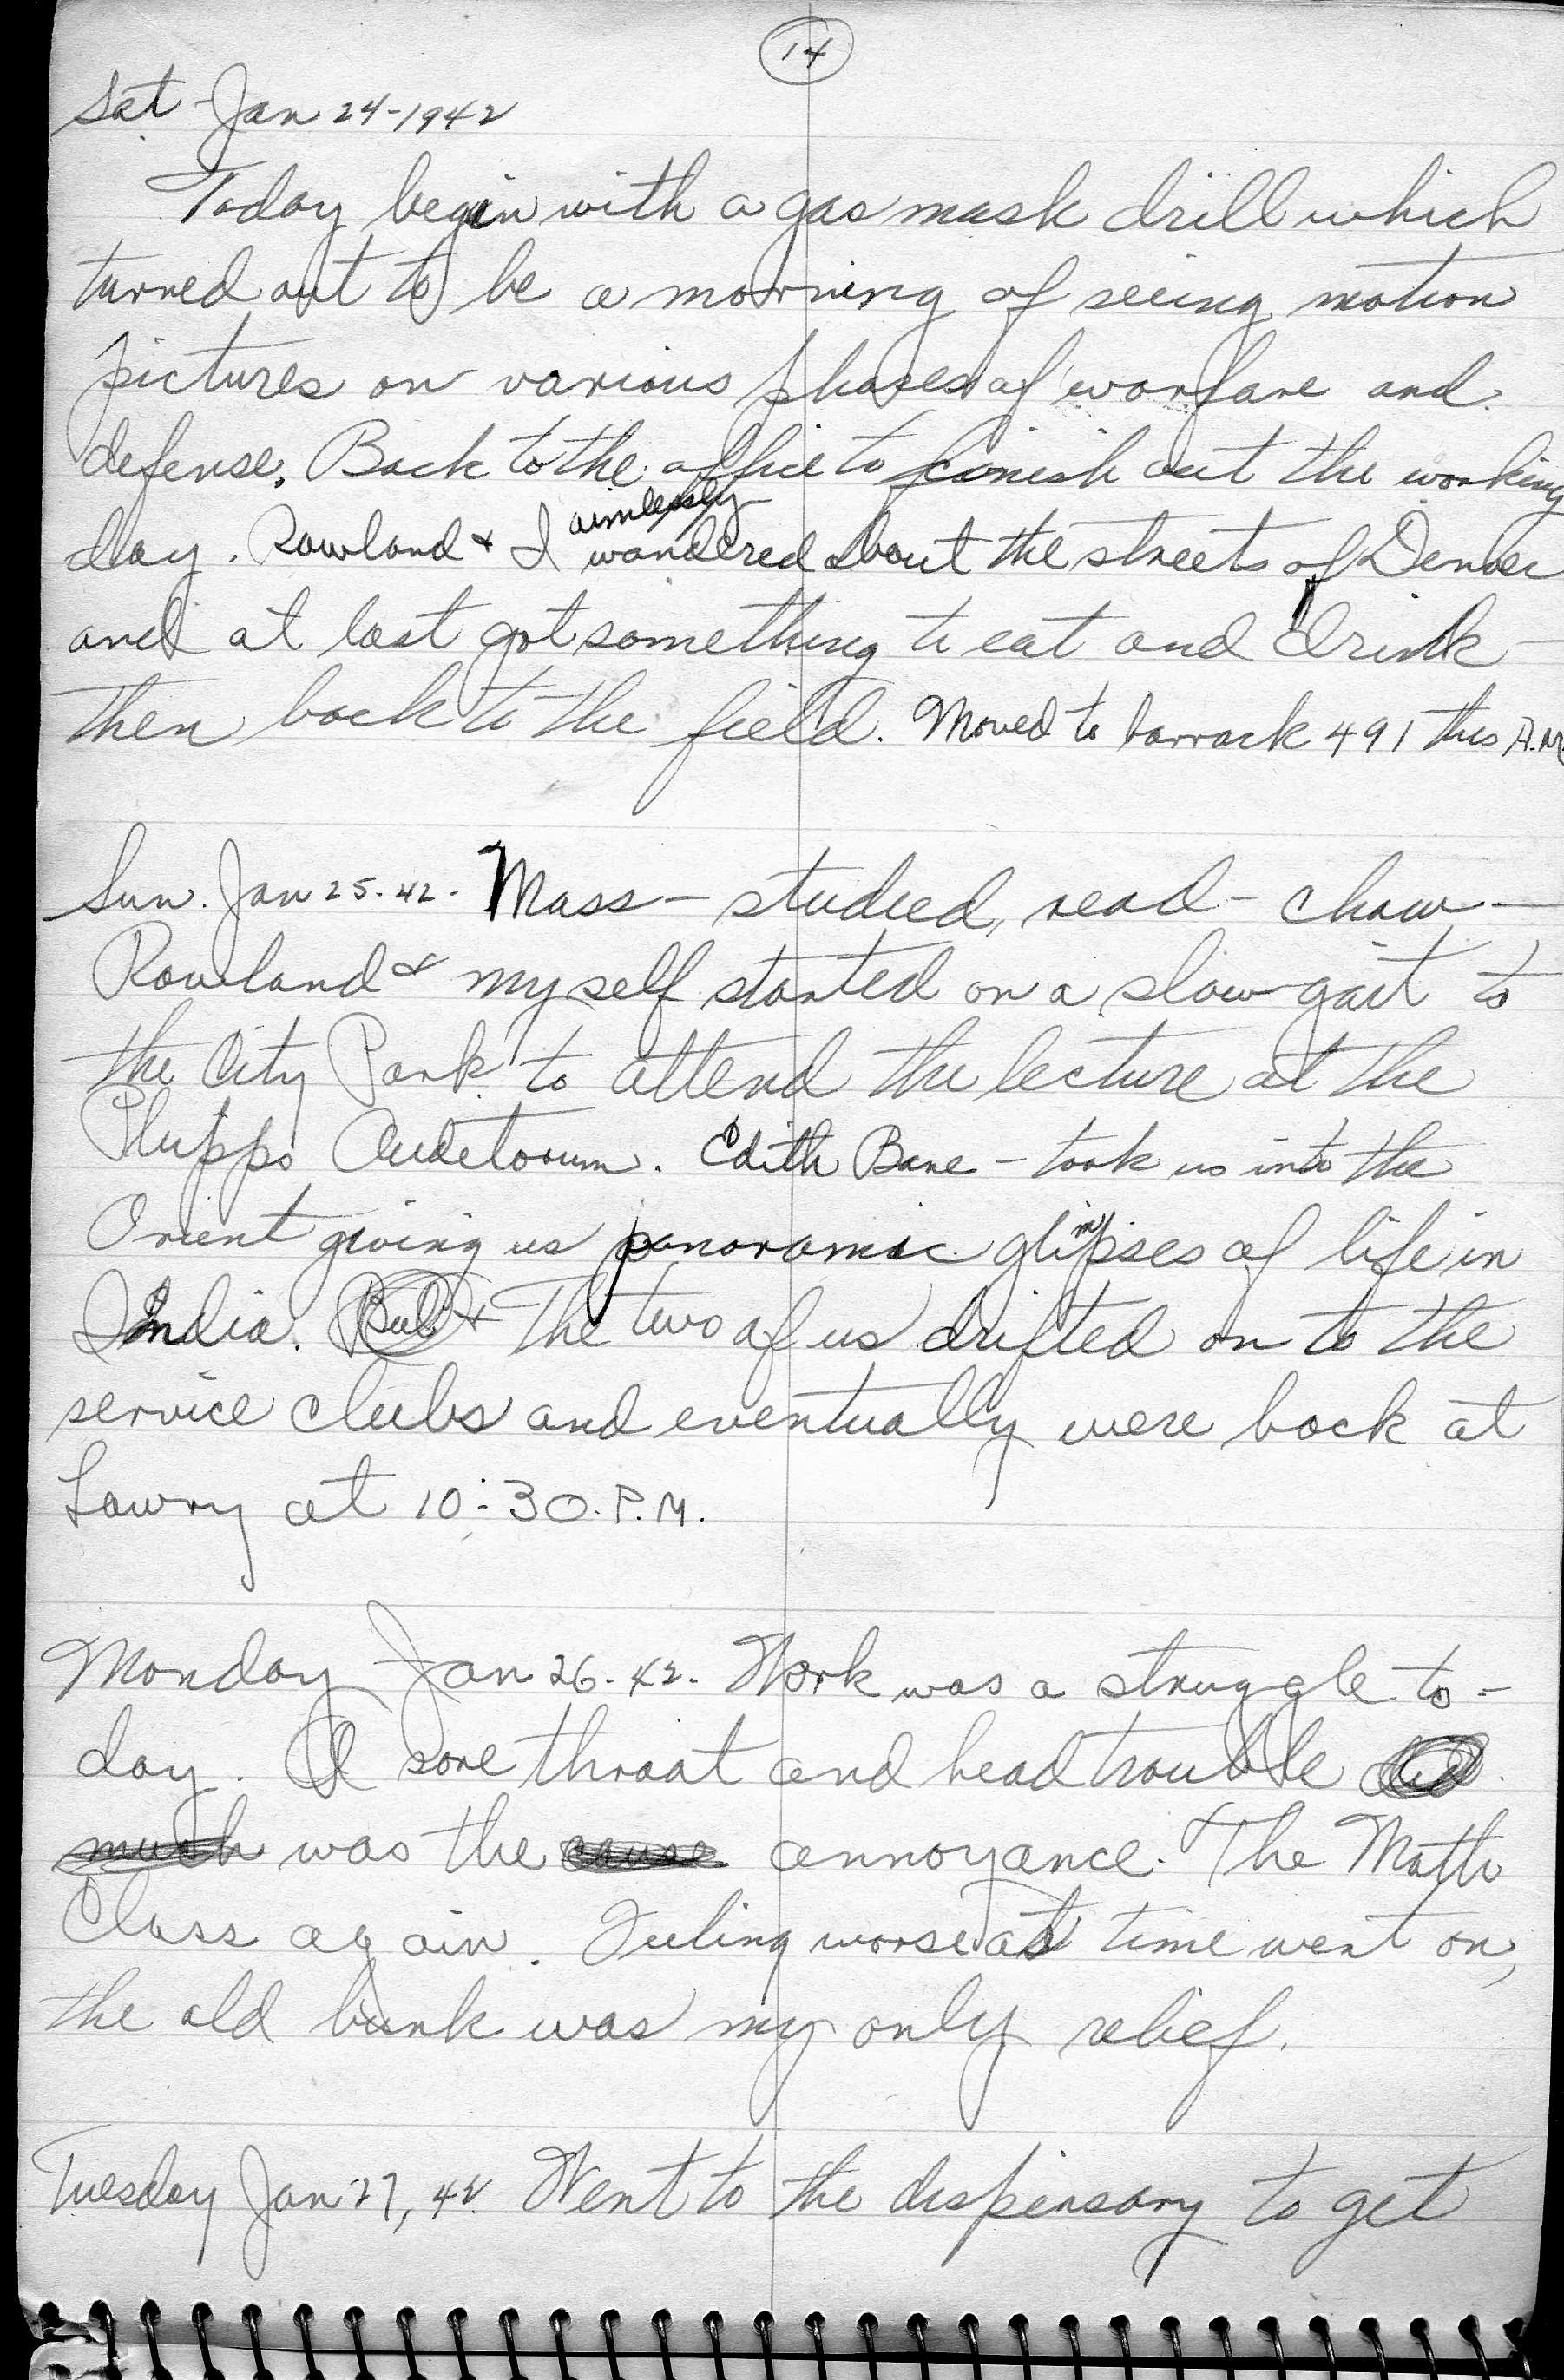 14
Sat - Jan 24-1942
Today begin with a gas mask drill which
turned out to be a morning of seeing motion
pictures on various phases of warfare and
defense. Back to the office to finish out the working
aimlessly
day. Rowland + I wandered about the streets of Denver
and at last got something to eat and drink -
then back to the field. Moved to barrack 491 this A.M.
Sun. Jan 25-42. Mass - studied, read - chow -
Rowland & myself started on a slow gait to
the City Park to attend the lecture at the
Phipps Audetorum. Edith Bane - took us into the
Orient giving us panoramic glimpses of life in
India. + The two of us drifted on to the
service clubs and eventually were back at
Lowry at 10:30 P.M.
Monday Jan 26-42. Work was a struggle to-
day. A sore throat and head trouble did
much was the cause annoyance. The Math
Class again. Feeling worse as time went on,
the old bunk was my only relief.
Tuesday Jan 27, 42 Went to the dispensary to get